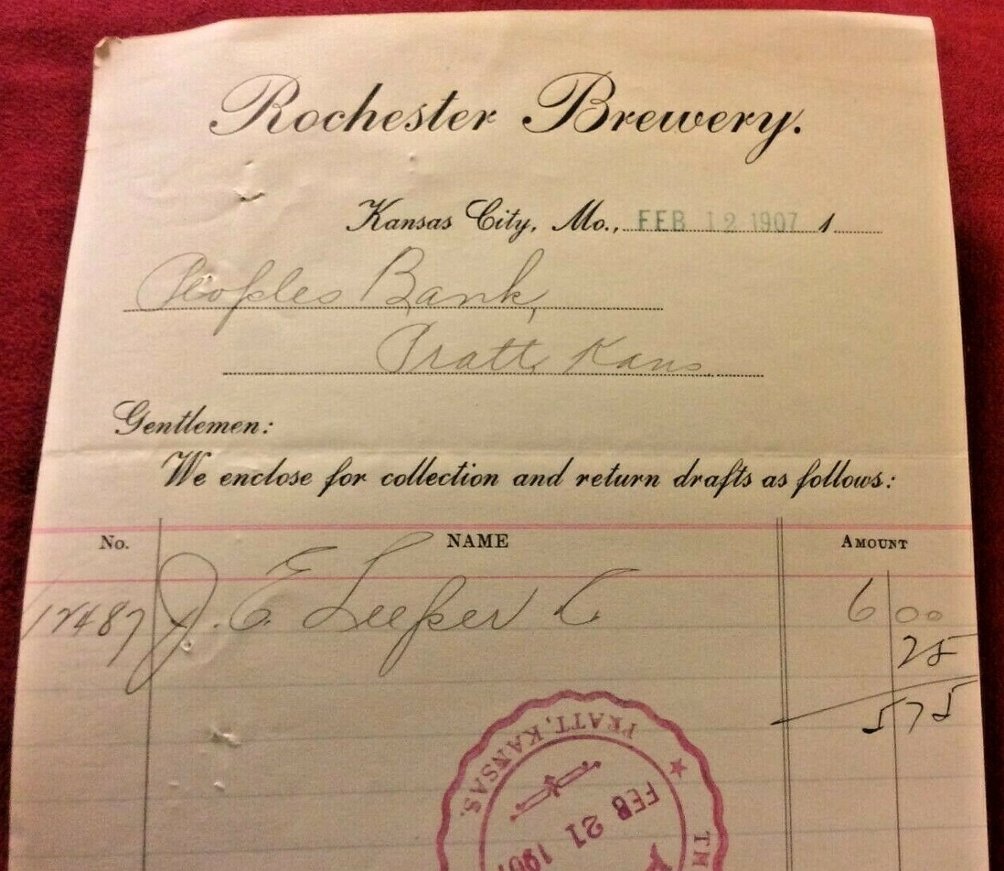 Rochester Brewery.
Kansas City, Mo., FEB 12 1907 1
Peoples Bank,
Pratt, Kans.
Gentlemen:
We enclose for collection and return drafts as follows:
No. NAME AMOUNT
12487 J. E. Leeper 6 00
25
5 75
PRATT, KANSAS.
FEB 21 1907